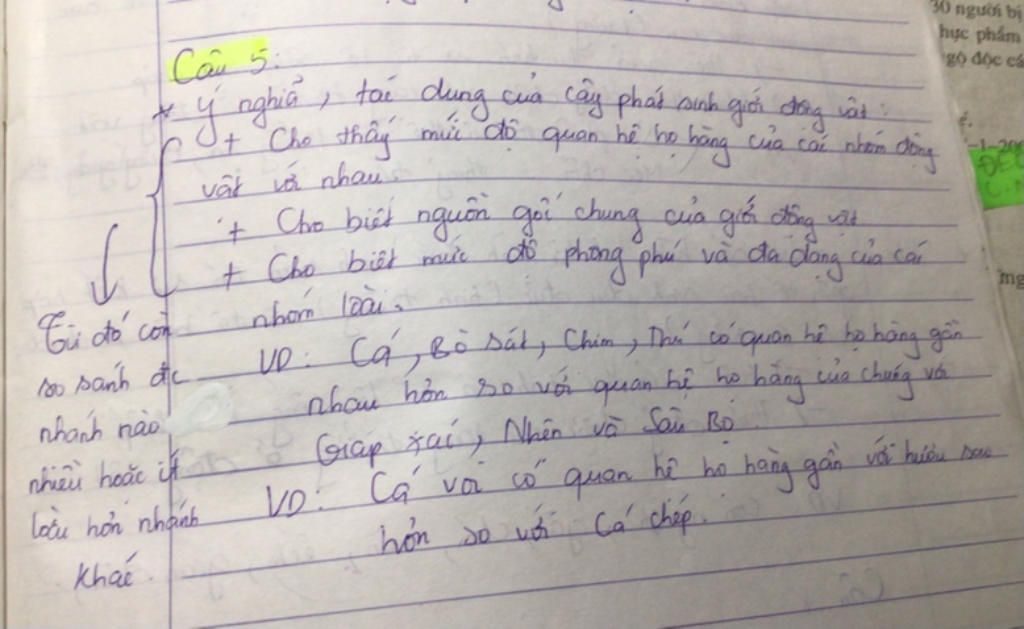 30 người bị
thực phẩm
ngộ độc cá
Câu 5:
* ý nghiã, tác dung của cây phát sinh giới động vật:
+ Cho thấy mức độ quan hệ họ hàng của các nhóm động
vật với nhau.
+ Cho biết nguồn gốc chung của giới động vật
+ Cho biết mức độ phong phú và đa dạng của các
nhóm loài.
VD: Cá, Bò sát, Chim, Thú có quan hệ họ hàng gần
nhau hơn so với quan hệ họ hàng của chúng với
Giáp xác, Nhện và Sâu Bọ.
VD: Cá voi có quan hệ họ hàng gần với hươu sao
hơn so với Cá chép.
Từ đó còn
so sánh đc
nhánh nào
nhiều hoặc ít
loài hơn nhánh
khác.